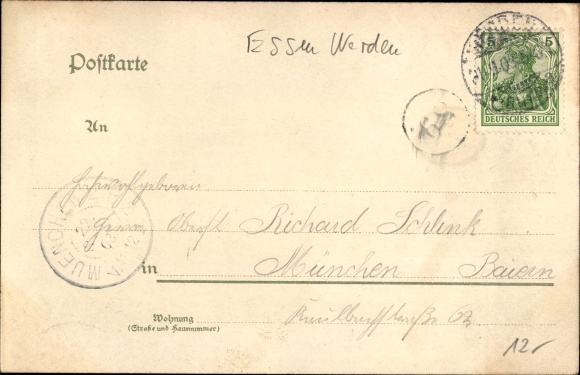 Essen Werden
Postkarte
5
DEUTSCHES REICH
An
Hochwohlgeboren
Herrn Oberstl. Richard Schlink
MUENCHEN
in München Baiern
Wohnung
(Straße und Hausnummer)
Kaulbachstraße 62
12